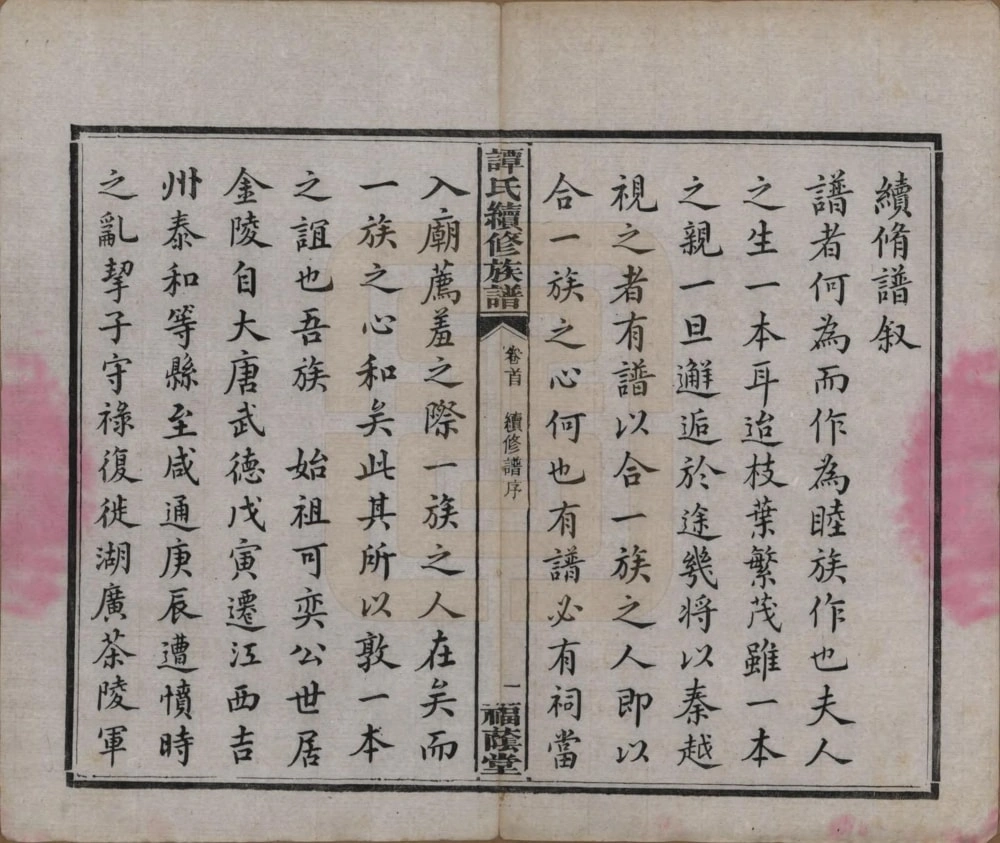 續脩譜叙
譜者何為而作為睦族作也夫人
之生一本耳迨枝葉繁茂雖一本
之親一旦邂逅於途幾將以秦越
視之者有譜以合一族之人即以
合一族之心何也有譜必有祠當
譚氏續修族譜
卷首 續修譜序
一 福蔭堂
入廟薦羞之際一族之人在矣而
一族之心和矣此其所以敦一本
之誼也吾族 始祖可奕公世居
金陵自大唐武德戊寅遷江西吉
州泰和等縣至咸通庚辰遭憤時
之亂挈子守祿復徙湖廣茶陵軍